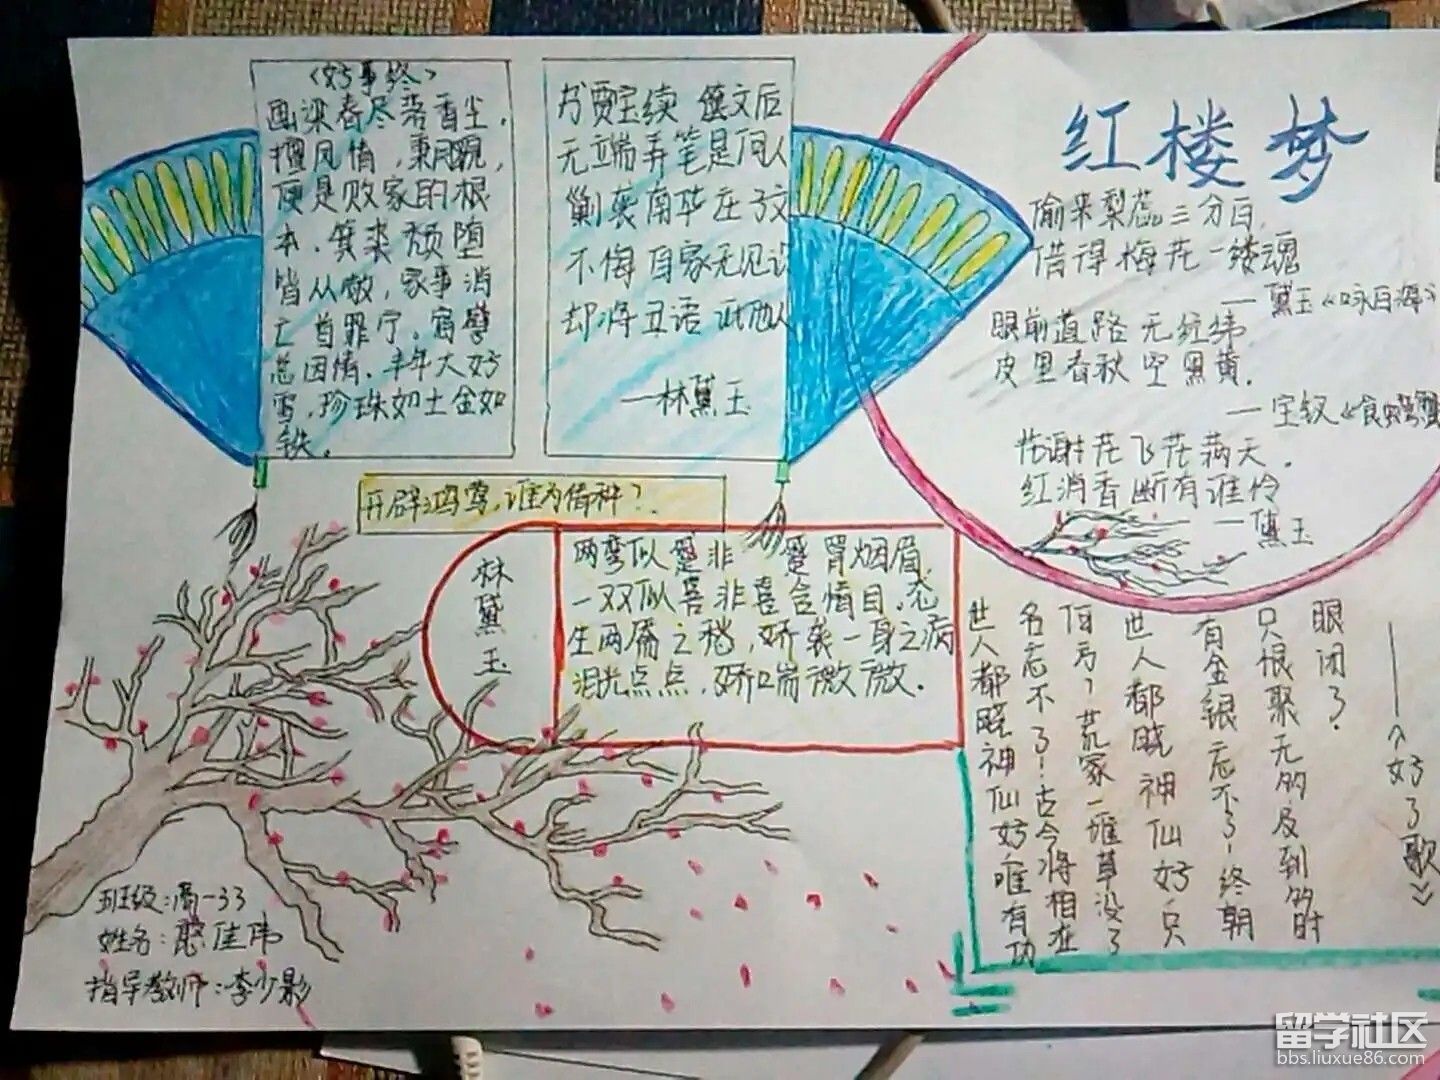 《好事终》
画梁春尽落香尘.
擅风情,秉月貌,
便是败家的根
本.箕裘颓堕
皆从敬,家事消
亡首罪宁.宿孽
总因情.丰年大好
雪,珍珠如土金如
铁.
为贾宝续 文后
无端弄笔是何人
剿袭南华庄子文
不悔自家无见识
却将丑语 他人
——林黛玉
红楼梦
偷来梨蕊三分白,
借得梅花一缕魂
——黛玉《咏白海
眼前道路无经纬
皮里春秋空黑黄.
——宝钗《食螃蟹
花谢花飞花满天.
红消香断有谁怜
——黛玉
开辟鸿 ,谁为情种?
林黛玉
两弯似蹙非 蹙罥烟眉,
一双似喜非喜含情目.态
生两靥之愁,娇袭一身之病
泪光点点,娇喘微微.
——《好了歌》
世人都晓神仙好唯有功
名忘不了!古今将相在
何方?荒冢一堆草没了
世人都晓神仙好.只
有金银忘不了!终朝
只恨聚无多及到多时
眼闭了?
班级:高一33
姓名: 佳伟
指导教师:李少影
留学社区
bbs.liuxue86.com